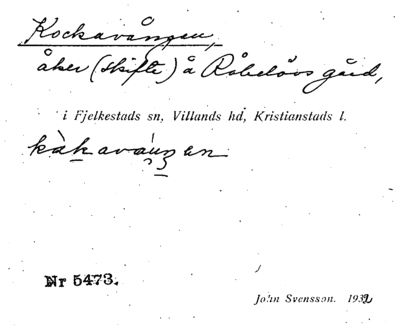 Kockavången,
åker (skifte) å Råbelövs gård,
i Fjelkestads sn, Villands hd, Kristianstads l.
kàkaváuŋen
Nr 5473.
John Svensson. 1932